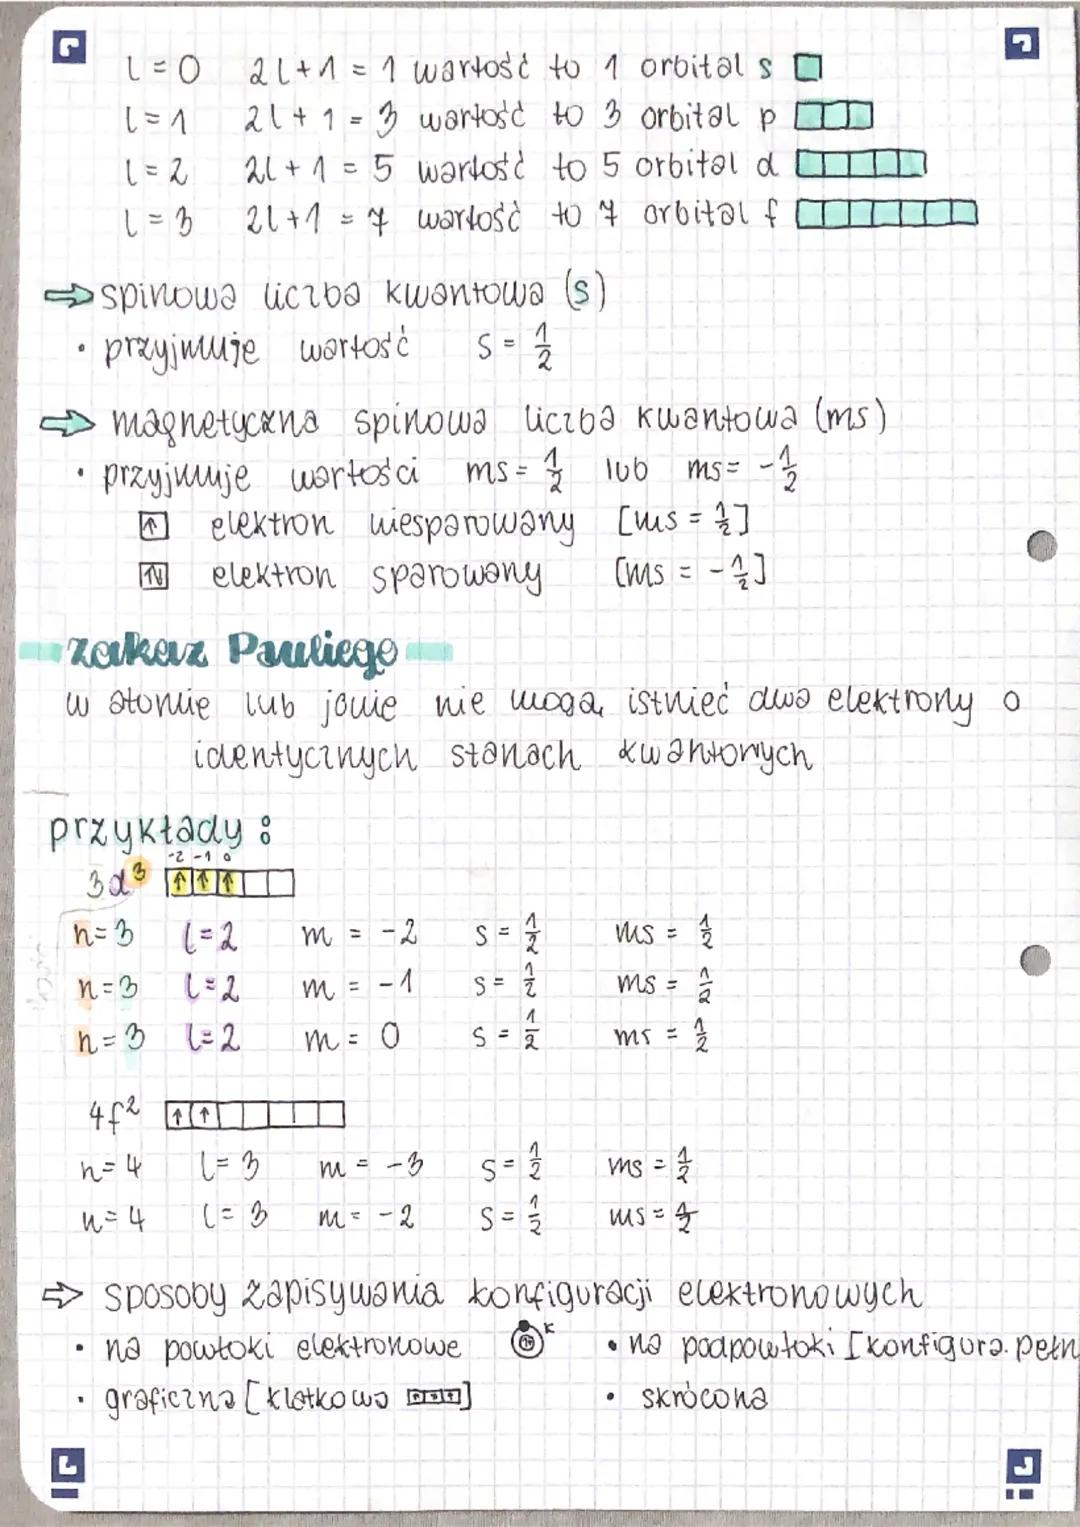 l = 0 2l + 1 = 1 wartość to 1 orbital s
l = 1 2l + 1 = 3 wartość to 3 orbital p
l = 2 2l + 1 = 5 wartość to 5 orbital d
l = 3 2l + 1 = 7 wartość to 7 orbital f
⇒ spinowa liczba kwantowa (s)
• przyjmuje wartość s = 1/2
⇒ magnetyczna spinowa liczba kwantowa (ms)
• przyjmuje wartości ms = 1/2 lub ms = -1/2
↑ elektron niesparowany [ms = 1/2]
↑↓ elektron sparowany [ms = -1/2]
zakaz Pauliego
w atomie lub jonie nie mogą istnieć dwa elektrony o
identycznych stanach kwantowych
przykłady:
-2 -1 0
3d³ ↑ ↑ ↑
n = 3 l = 2 m = -2 s = 1/2 ms = 1/2
n = 3 l = 2 m = -1 s = 1/2 ms = 1/2
n = 3 l = 2 m = 0 s = 1/2 ms = 1/2
4f² ↑ ↑
n = 4 l = 3 m = -3 s = 1/2 ms = 1/2
n = 4 l = 3 m = -2 s = 1/2 ms = 1/2
⇒ sposoby zapisywania konfiguracji elektronowych
• na powłoki elektronowe K • na podpowłoki [konfigura. pełn
• graficzna [klatkowa] • skrócona